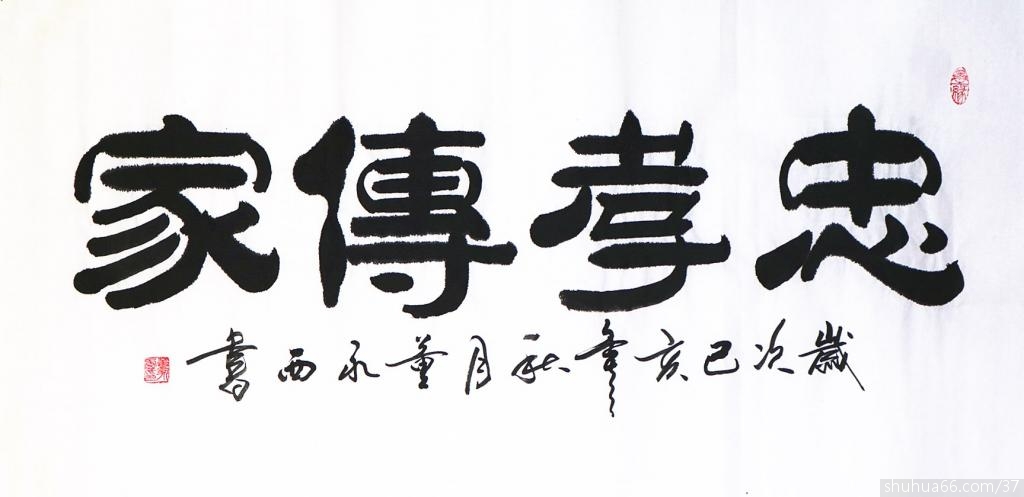 忠孝傳家
歲次己亥年秋月董永西書
shuhua66.com/37